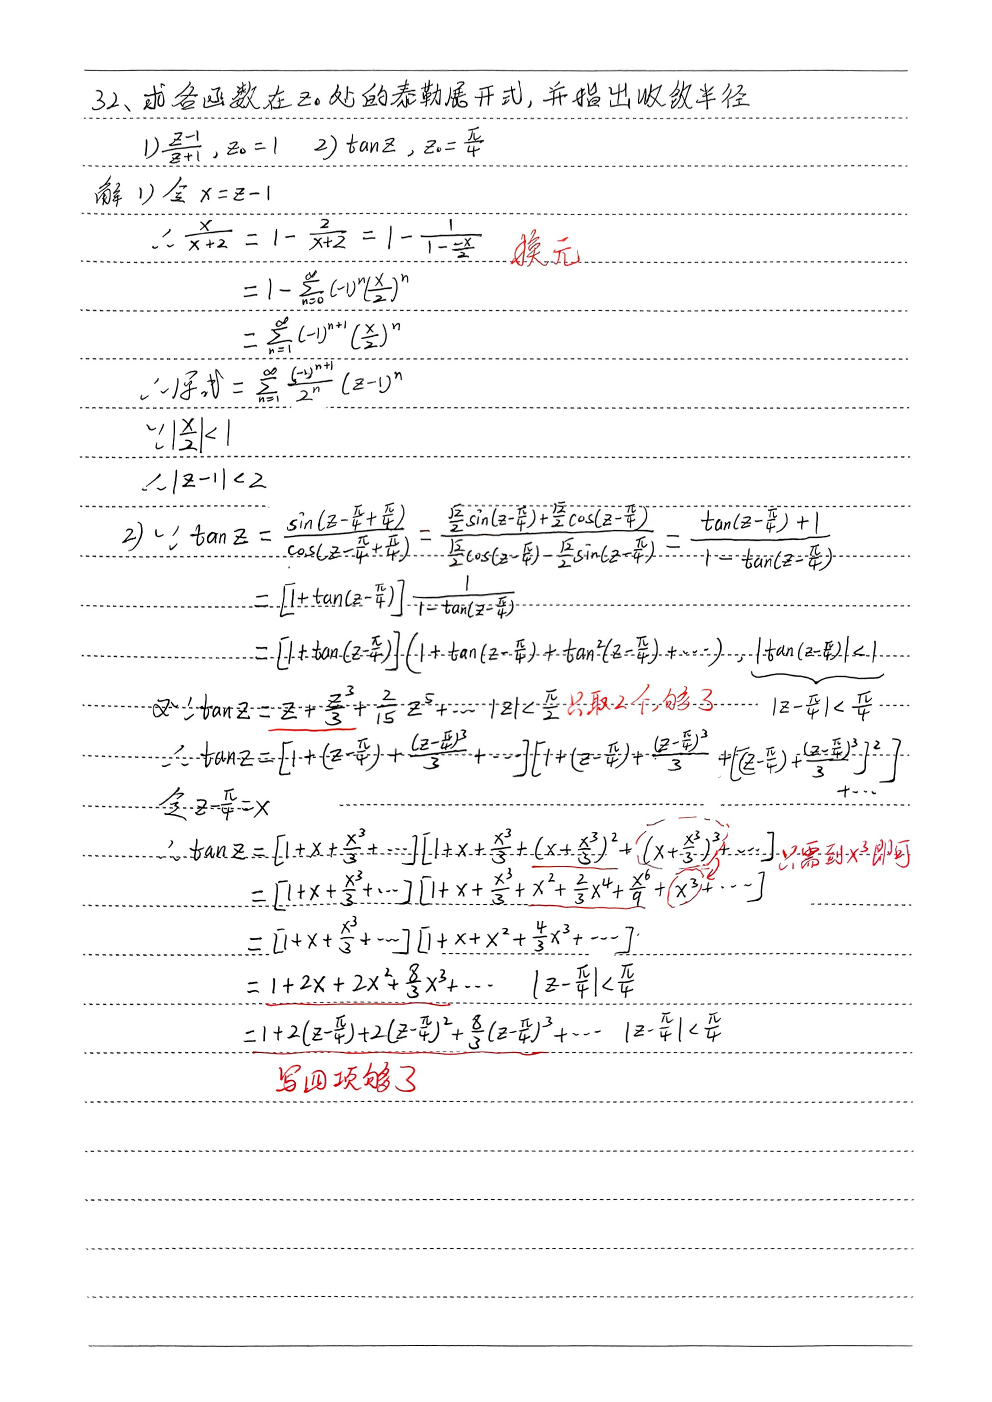 32、求各函数在z₀处的泰勒展开式,并指出收敛半径
1) \frac{z-1}{z+1}, z₀=1 2) tanz, z₀=\frac{π}{4}
解 1) 令 x=z-1
∴ \frac{x}{x+2} = 1-\frac{2}{x+2} = 1-\frac{1}{1-\frac{-x}{2}} 换元
=1-\sum_{n=0}^{∞}(-1)^n(\frac{x}{2})^n
=\sum_{n=1}^{∞}(-1)^{n+1}(\frac{x}{2})^n
∴原式=\sum_{n=1}^{∞}\frac{(-1)^{n+1}}{2^n}(z-1)^n
∵|\frac{x}{2}|<1
∴|z-1|<2
2) ∵ tanz = \frac{sin(z-\frac{π}{4}+\frac{π}{4})}{cos(z-\frac{π}{4}+\frac{π}{4})} = \frac{\frac{\sqrt{2}}{2}sin(z-\frac{π}{4})+\frac{\sqrt{2}}{2}cos(z-\frac{π}{4})}{\frac{\sqrt{2}}{2}cos(z-\frac{π}{4})-\frac{\sqrt{2}}{2}sin(z-\frac{π}{4})} = \frac{tan(z-\frac{π}{4})+1}{1-tan(z-\frac{π}{4})}
=[1+tan(z-\frac{π}{4})]\frac{1}{1-tan(z-\frac{π}{4})}
=[1+tan(z-\frac{π}{4})](1+tan(z-\frac{π}{4})+tan²(z-\frac{π}{4})+⋯), |tan(z-\frac{π}{4})|<1
又∵tanz=z+\frac{z³}{3}+\frac{2}{15}z⁵+⋯ |z|<\frac{π}{2} 只取2个,够了 |z-\frac{π}{4}|<\frac{π}{4}
∴ tanz=[1+(z-\frac{π}{4})+\frac{(z-\frac{π}{4})³}{3}+⋯][1+(z-\frac{π}{4})+\frac{(z-\frac{π}{4})³}{3}+[(z-\frac{π}{4})+\frac{(z-\frac{π}{4})³}{3}]²]
+⋯
令z-\frac{π}{4}=x
∴ tanz=[1+x+\frac{x³}{3}+⋯][1+x+\frac{x³}{3}+(x+\frac{x³}{3})²+(x+\frac{x³}{3})³+⋯] 只需到x³即可
=[1+x+\frac{x³}{3}+⋯][1+x+\frac{x³}{3}+x²+\frac{2}{3}x⁴+\frac{x⁶}{9}+(x³)+⋯]
=[1+x+\frac{x³}{3}+⋯][1+x+x²+\frac{4}{3}x³+⋯]
=1+2x+2x²+\frac{8}{3}x³+⋯ |z-\frac{π}{4}|<\frac{π}{4}
=1+2(z-\frac{π}{4})+2(z-\frac{π}{4})²+\frac{8}{3}(z-\frac{π}{4})³+⋯ |z-\frac{π}{4}|<\frac{π}{4}
写四项够了